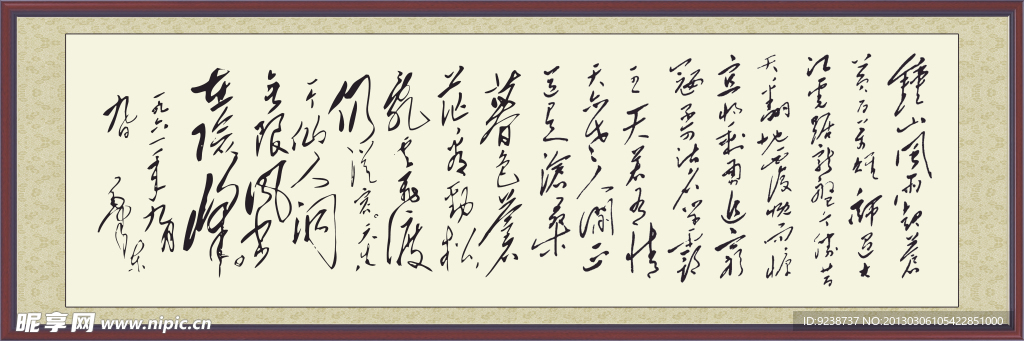 鍾山風雨起蒼
黄百万雄師過大
江虎踞龍盤今勝昔
天翻地覆慨而慷
宜將剩勇追窮
寇不可沽名学霸
王天若有情
天亦老人间正
道是滄桑
暮色蒼
茫看勁松
亂雲飛渡
仍從容。天生
一个仙人洞
无限風光
在險峰。
一九六一年九月
九日
毛泽东
昵享网 www.nipic.cn
ID:9238737 NO:20130306105422851000